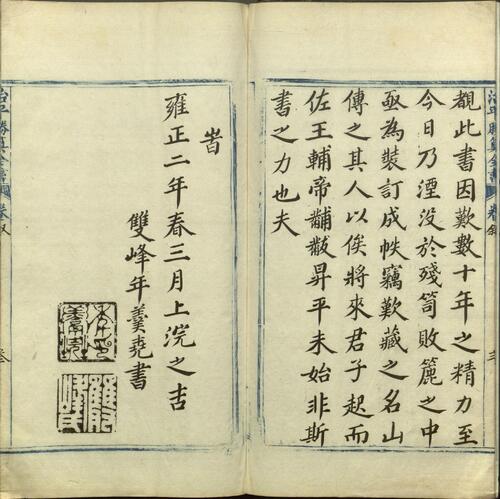 覩此書因歎數十年之精力至
今日乃湮没於殘笥敗簏之中
亟為裝訂成帙竊歎藏之名山
傳之其人以俟將來君子起而
佐王輔帝黼黻昇平未始非斯
書之力也夫
旹
雍正二年春三月上浣之吉
雙峰年羹堯書